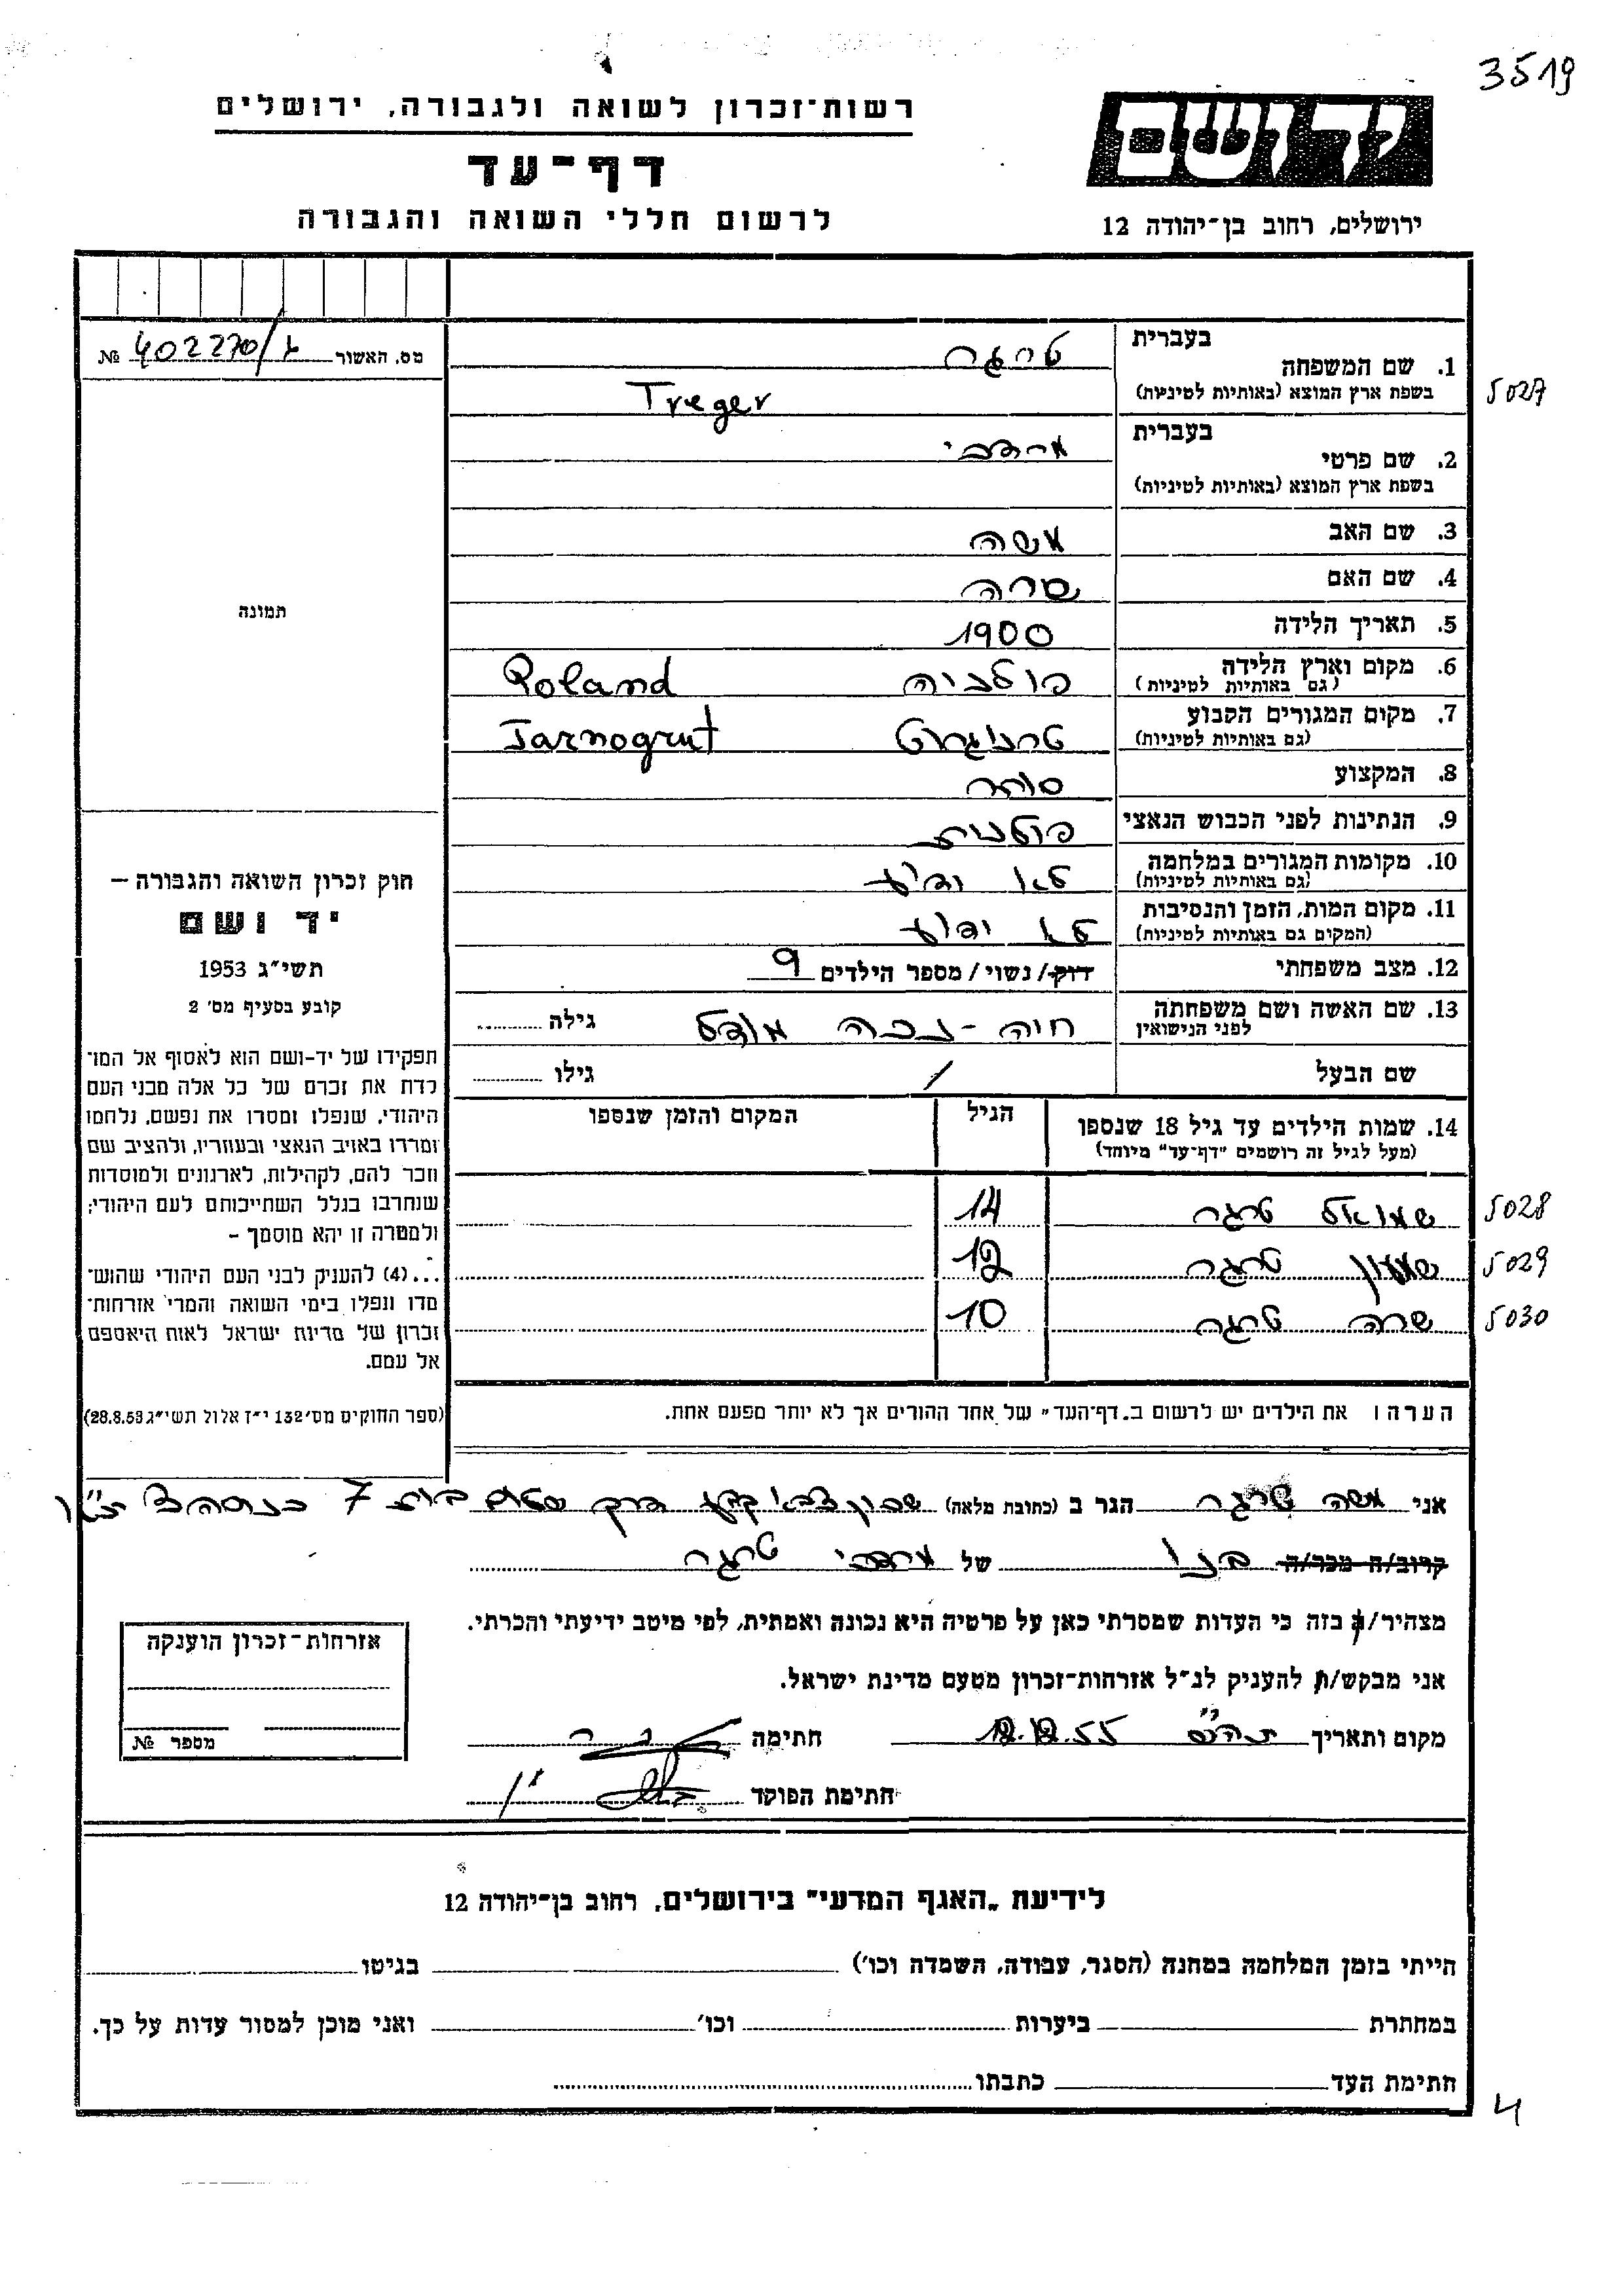 3519
רשות-זכרון לשואה ולגבורה, ירושלים
דף-עד
לרשום חללי השואה והגבורה
יד ושם
ירושלים, רחוב בן-יהודה 12
מס. האשור 402270/ №
בעברית טרגר
1. שם המשפחה
בשפת ארץ המוצא (באותיות לטיניות) Treger
5027
בעברית
2. שם פרטי מרדכי
בשפת ארץ המוצא (באותיות לטיניות)
3. שם האב משה
4. שם האם שרה
5. תאריך הלידה 1900
6. מקום וארץ הלידה פולניה Poland
(גם באותיות לטיניות)
7. מקום המגורים הקבוע טרנוגרוט Tarnogrut
(גם באותיות לטיניות)
8. המקצוע סוחר
9. הנתינות לפני הכבוש הנאצי פולנית
10. מקומות המגורים במלחמה לא ידוע
(גם באותיות לטיניות)
11. מקום המות, הזמן והנסיבות לא ידוע
(המקום גם באותיות לטיניות)
12. מצב משפחתי רווק/נשוי/מספר הילדים 9
13. שם האשה ושם משפחתה חיה - גילה
לפני הנישואין
שם הבעל / גילו
14. שמות הילדים עד גיל 18 שנספו הגיל המקום והזמן שנספו
(מעל לגיל זה רושמים "דף-עד" מיוחד)
שמואל טרגר 14 5028
שמעון טרגר 12 5029
שרה טרגר 10 5030
הערה: את הילדים יש לרשום ב„דף-העד" של אחד ההורים אך לא יותר מפעם אחת.
תמונה
חוק זכרון השואה והגבורה –
יד ושם
תשי"ג 1953
קובע בסעיף מס' 2
תפקידו של יד-ושם הוא לאסוף אל המו־
לדת את זכרם של כל אלה מבני העם
היהודי, שנפלו ומסרו את נפשם, נלחמו
ומרדו באויב הנאצי ובעוזריו, ולהציב שם
וזכר להם, לקהילות, לארגונים ולמוסדות
שנחרבו בגלל השתייכותם לעם היהודי;
ולמטרה זו יהא מוסמך –
...(4) להעניק לבני העם היהודי שהוש־
מדו ונפלו בימי השואה והמרי אזרחות־
זכרון של מדינת ישראל לאות היאספם
אל עמם.
(ספר החוקים מס' 132 י"ז אלול תשי"ג 28.8.53)
אני משה טרגר הגר ב (כתובת מלאה) 7
קרוב/ה מכר/ה בנו של מרדכי טרגר
מצהיר/ה בזה כי העדות שמסרתי כאן על פרטיה היא נכונה ואמתית, לפי מיטב ידיעתי והכרתי.
אני מבקש/ת להעניק לנ"ל אזרחות-זכרון מטעם מדינת ישראל.
מקום ותאריך 12.12.55 חתימה
חתימת הפוקד
אזרחות-זכרון הוענקה
מספר №
לידיעת „האגף המדעי" בירושלים, רחוב בן-יהודה 12
הייתי בזמן המלחמה במחנה (הסגר, עבודה, השמדה וכו') בגיטו
במחתרת ביערות וכו' ואני מוכן למסור עדות על כך.
חתימת העד כתבתו
4